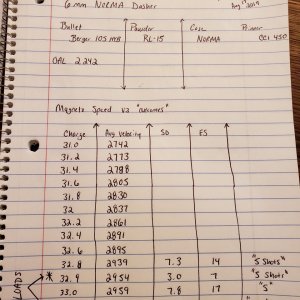 6mm NORMA Dasher Aug 2019
Bullet Powder Case Primer
Berger 105 RL-15 NORMA CCI 450
OAL 2.242
Magneto Speed V3
Charge Avg Velocity SD ES
31.0 2742
31.2 2773
31.4 2788
31.6 2805
31.8 2830
32 2837
32.2 2861
32.4 2891
32.6 2895
32.8 2939 7.3 14 "5 Shots"
* 32.9 2954 3.0 7 "5 Shots"
33.0 2959 7.8 17
LOADS